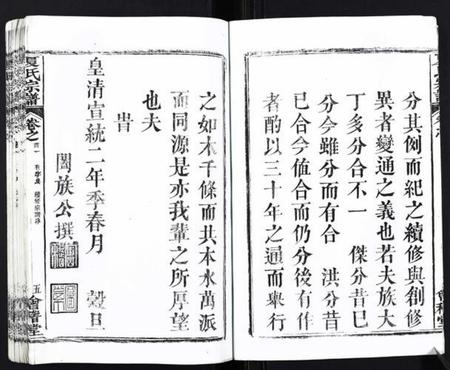 分其例而紀之續修與創修
異者變通之義也若夫族大
丁多分合不一 傑分昔已
分今雖分而有合 洪分昔
合今值合而仍分後有作
者酌以三十年之通而率行
之如木千條而共本水萬派
而同源是亦我輩之所厚望
也夫
旹
皇清宣統二年季春月 穀旦
闔族公撰
夏氏宗譜
卷之
五